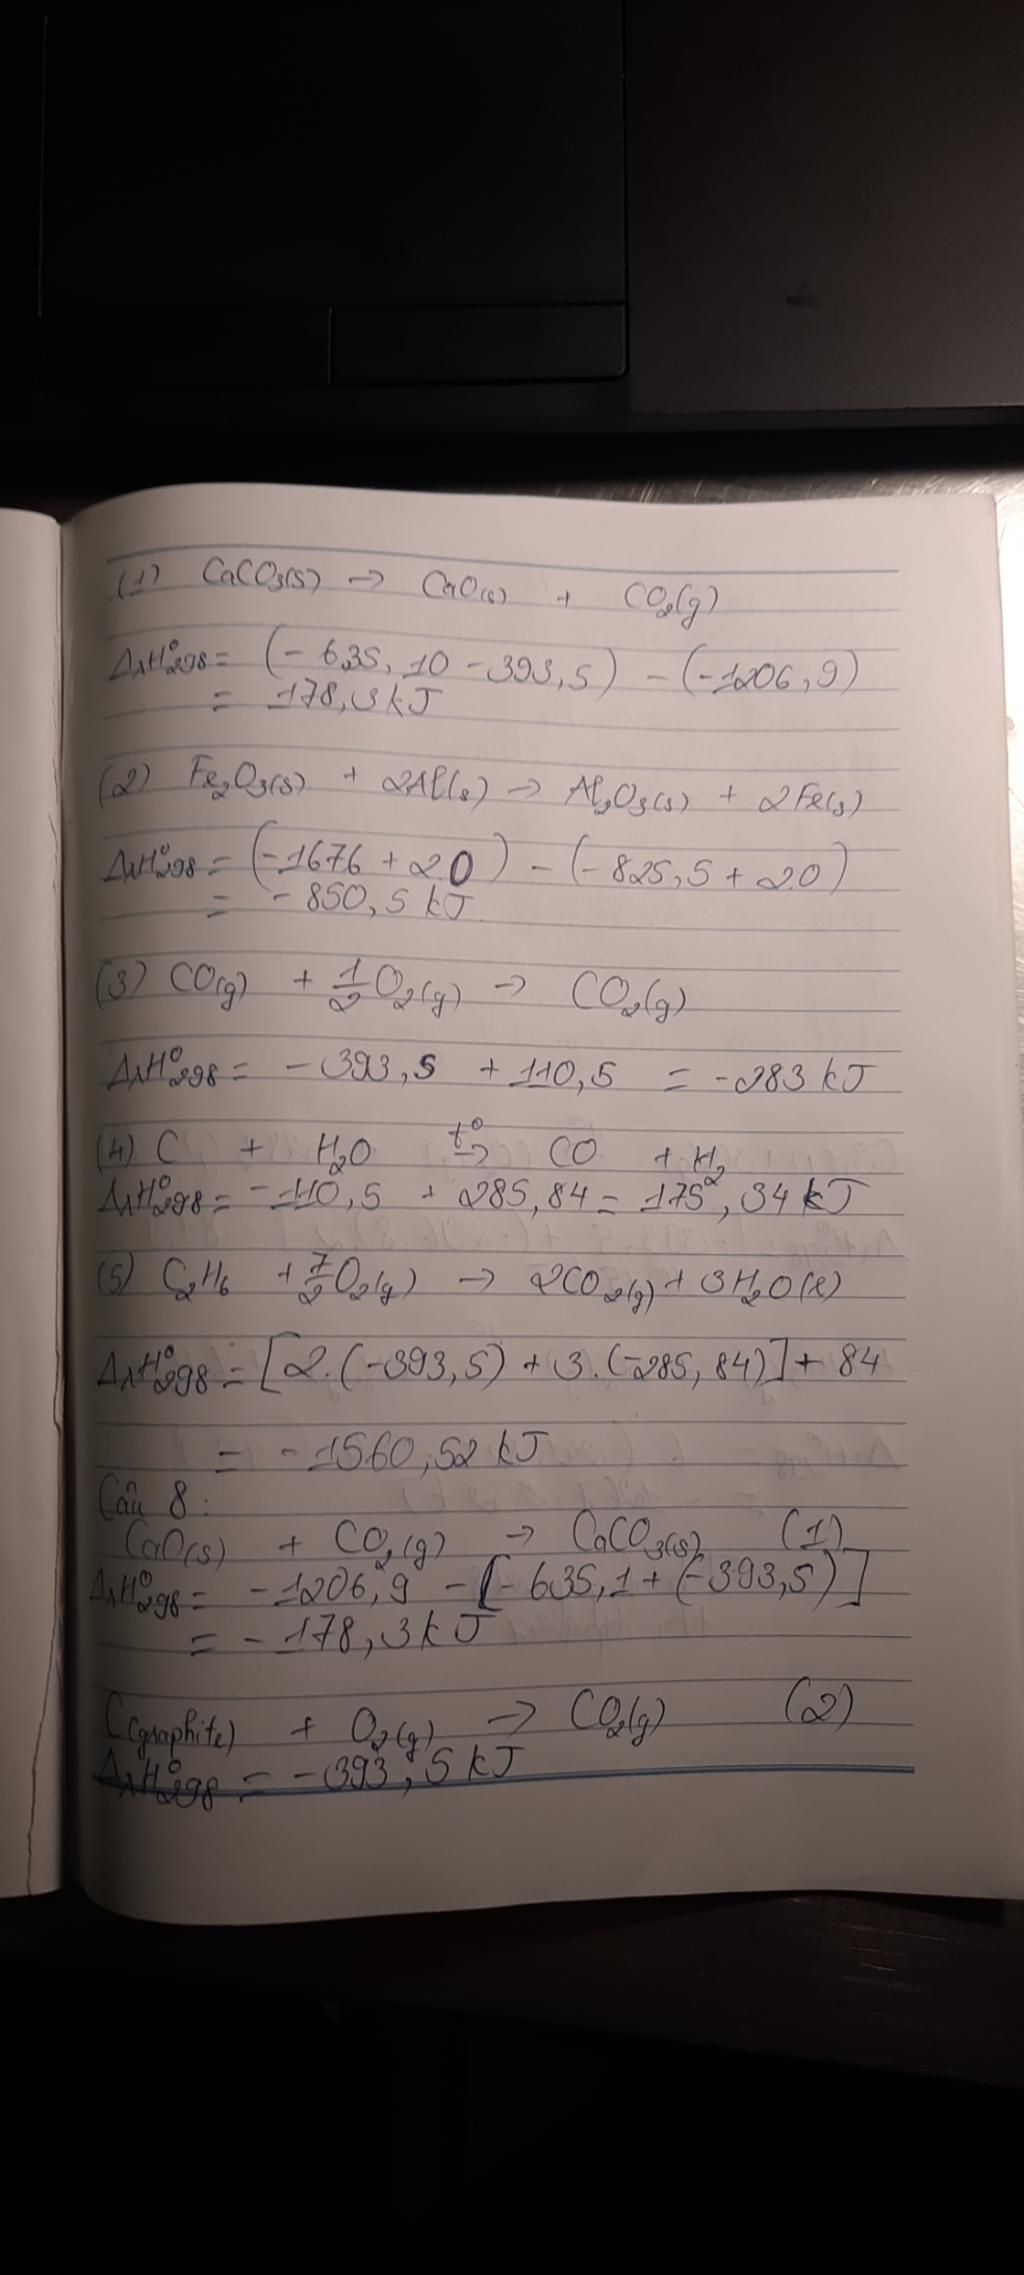 (1) CaCO₃(s) → CaO(s) + CO₂(g)
ΔᵣH⁰₂₉₈ = (-635,10 - 393,5) - (-1206,9)
= 178,3 kJ
(2) Fe₂O₃(s) + 2Al(s) → Al₂O₃(s) + 2Fe(s)
ΔᵣH⁰₂₉₈ = (-1676 + 2.0) - (-825,5 + 2.0)
= -850,5 kJ
(3) CO(g) + 1/2 O₂(g) → CO₂(g)
ΔᵣH⁰₂₉₈ = -393,5 + 110,5 = -283 kJ
(4) C + H₂O t⁰→ CO + H₂
ΔᵣH⁰₂₉₈ = -110,5 + 285,84 = 175,34 kJ
(5) C₂H₆ + 7/2 O₂(g) → 2CO₂(g) + 3H₂O(l)
ΔᵣH⁰₂₉₈ = [2.(-393,5) + 3.(-285,84)] + 84
= -1560,52 kJ
Câu 8:
CaO(s) + CO₂(g) → CaCO₃(s) (1)
ΔᵣH⁰₂₉₈ = -1206,9 - [-635,1 + (-393,5)]
= -178,3 kJ
C(graphite) + O₂(g) → CO₂(g) (2)
ΔᵣH⁰₂₉₈ = -393,5 kJ